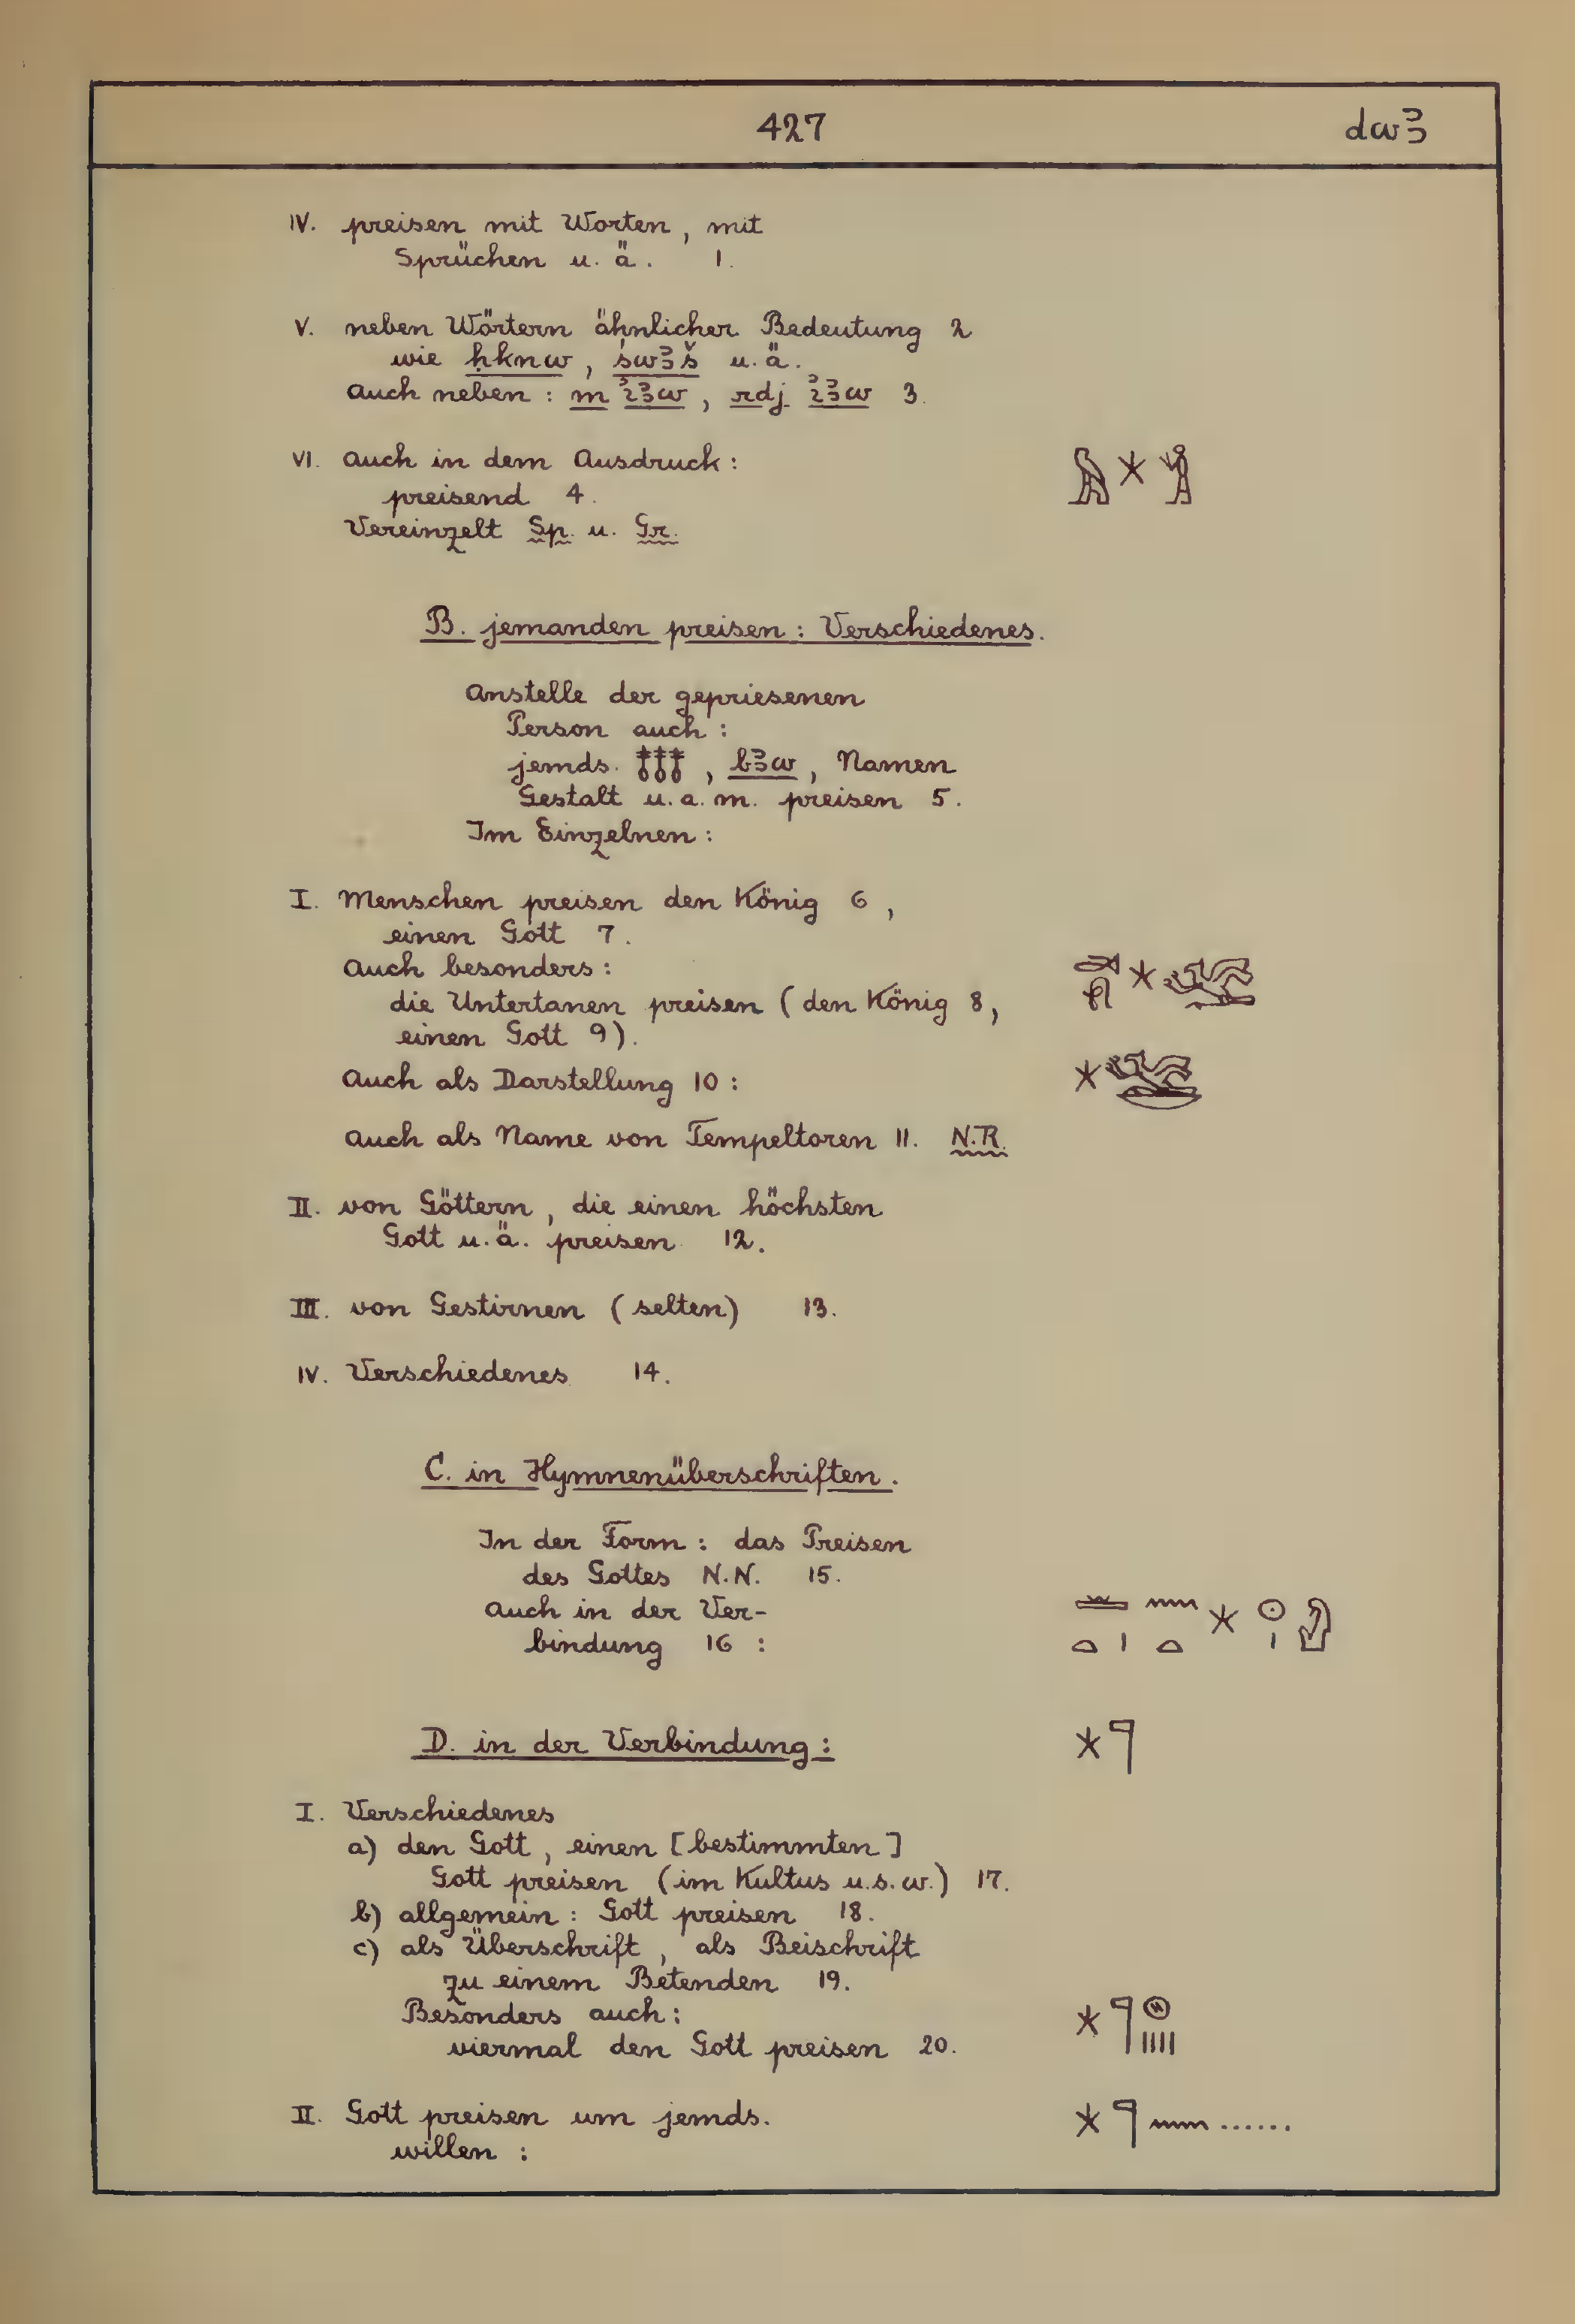 427
dwꜣ
IV. preisen mit Worten, mit
Sprüchen u. ä. 1.
V. neben Wörtern ähnlicher Bedeutung 2
wie ḥknw, śwꜣš u. ä.
Auch neben: m ꞽꜣw, rdj ꞽꜣw 3.
VI. Auch in dem Ausdruck: 𓅓𓇼𓀢
preisend 4.
Vereinzelt Sp. u. Gr.
B. jemanden preisen: Verschiedenes.
Anstelle der gepriesenen
Person auch:
jemds. 𓄤𓄤𓄤, bꜣw, Namen
Gestalt u. a. m. preisen 5.
Im Einzelnen:
I. Menschen preisen den König 6,
einen Gott 7.
Auch besonders:
die Untertanen preisen (den König 8,
einen Gott 9).
Auch als Darstellung 10:
Auch als Name von Tempeltoren 11. N.R.
II. von Göttern, die einen höchsten
Gott u. ä. preisen 12.
III. von Gestirnen (selten) 13.
IV. Verschiedenes 14.
C. in Hymnenüberschriften.
In der Form: das Preisen
des Gottes N.N. 15.
Auch in der Ver-
bindung 16:
D. in der Verbindung: 𓇼𓊹
I. Verschiedenes
a) den Gott, einen [bestimmten]
Gott preisen (im Kultus u.s.w.) 17.
b) allgemein: Gott preisen 18.
c) als Überschrift, als Beischrift
zu einem Betenden 19.
Besonders auch: 𓇼𓊹𓊗𓏽
viermal den Gott preisen 20.
II. Gott preisen um jemds. 𓇼𓊹𓈖......
willen: